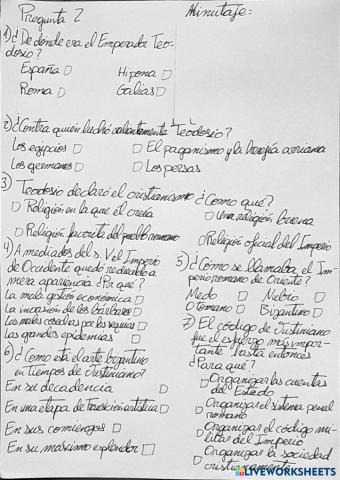 Pregunta 2
Minutaje:
1) ¿De dónde era el Emperador Teo-
dosio?
España
Hipona
Roma
Galias
2) ¿Contra quien luchó valientemente Teodosio?
Los egipcios
El paganismo y la herejía arriana
Los germanos
Los persas
3) Teodosio declaró el cristianismo ¿Como que?
Religión en la que él creía
Una religión buena
Religión favorita del pueblo romano
Religión oficial del Imperio
4) A mediados del s. V el Imperio
de Occidente quedó reducido a
mera apariencia ¿Por que?
La mala gestión económica
La invasión de los bárbaros
Las malas cosechas por las sequias
Las grandes epidemias
5) ¿Cómo se llamaba el Im-
perio romano de Oriente?
Medo
Nubio
Otomano
Bizantino
6) ¿Como está el arte bizantino
en tiempos de Justiniano?
En su decadencia
En una etapa de transición artística
En sus comienzos
En su máximo esplendor
7) El código de Justiniano
fue el esfuerzo más impor-
tante hasta entonces
¿Para que?
Organizar las cuentas
del Estado
Organizar el sistema penal
romano
Organizar el código mi-
litar del Imperio
Organizar la sociedad
cristianamente
LIVEWORKSHEETS